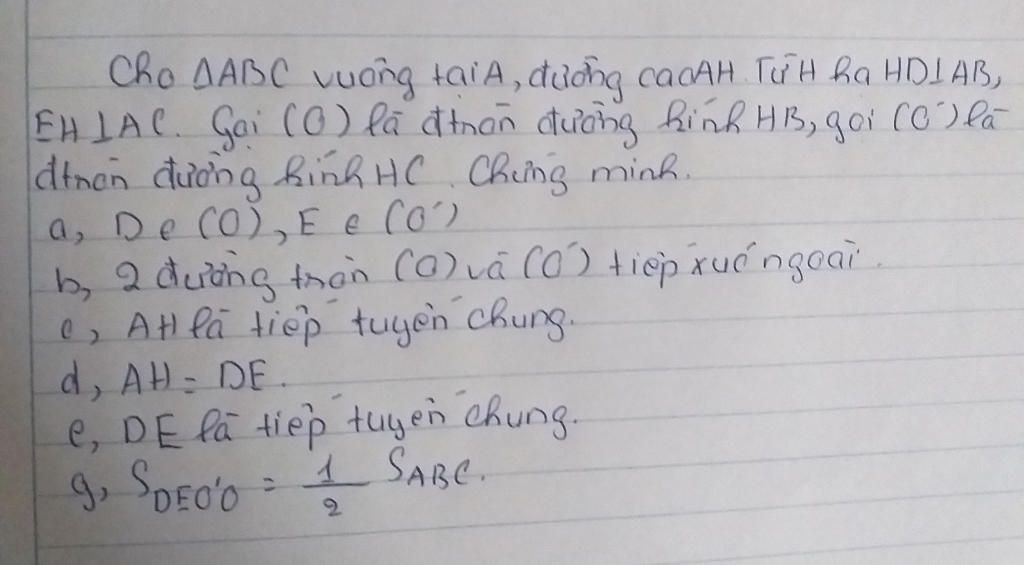 Cho ΔABC vuông tại A, đường cao AH. Từ H hạ HD⊥AB,
EH⊥AC. Gọi (O) là đtròn đường kính HB, gọi (O') là
đtròn đường kính HC. Chứng minh.
a, D ∈ (O), E ∈ (O')
b, 2 đường tròn (O) và (O') tiếp xúc ngoài.
c, AH là tiếp tuyến chung.
d, AH = DE.
e, DE là tiếp tuyến chung.
g, S_{DEO'O} = 1/2 S_{ABC}.